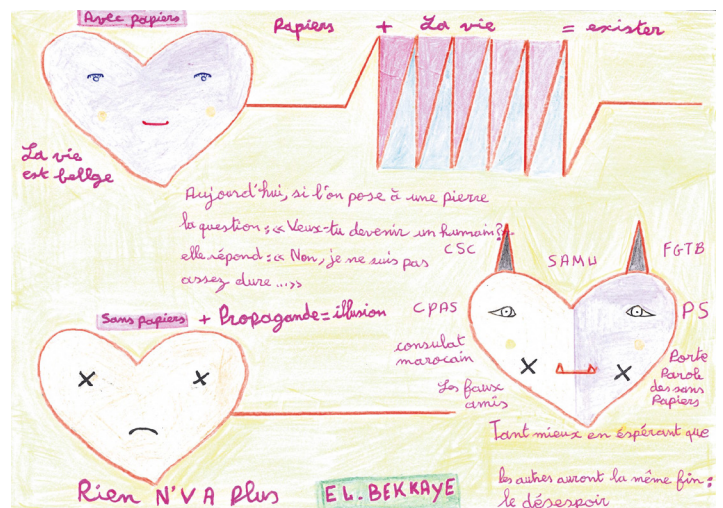 Avec papiers
Papiers + La vie = exister
La vie
est bellge
Aujourd'hui, si l'on pose à une pierre
la question : « Veux-tu devenir un humain? »
elle répond : « Non, je ne suis pas
assez dure ... »
CSC
SAMU
FGTB
CPAS
PS
consulat
marocain
Les faux
amis
Porte
Parole
des sans
Papiers
Sans papiers + Propagande = illusion
Tant mieux en éspérant que
les autres auront la même fin :
le désespoir
Rien N'VA Plus
EL. BEKKAYE